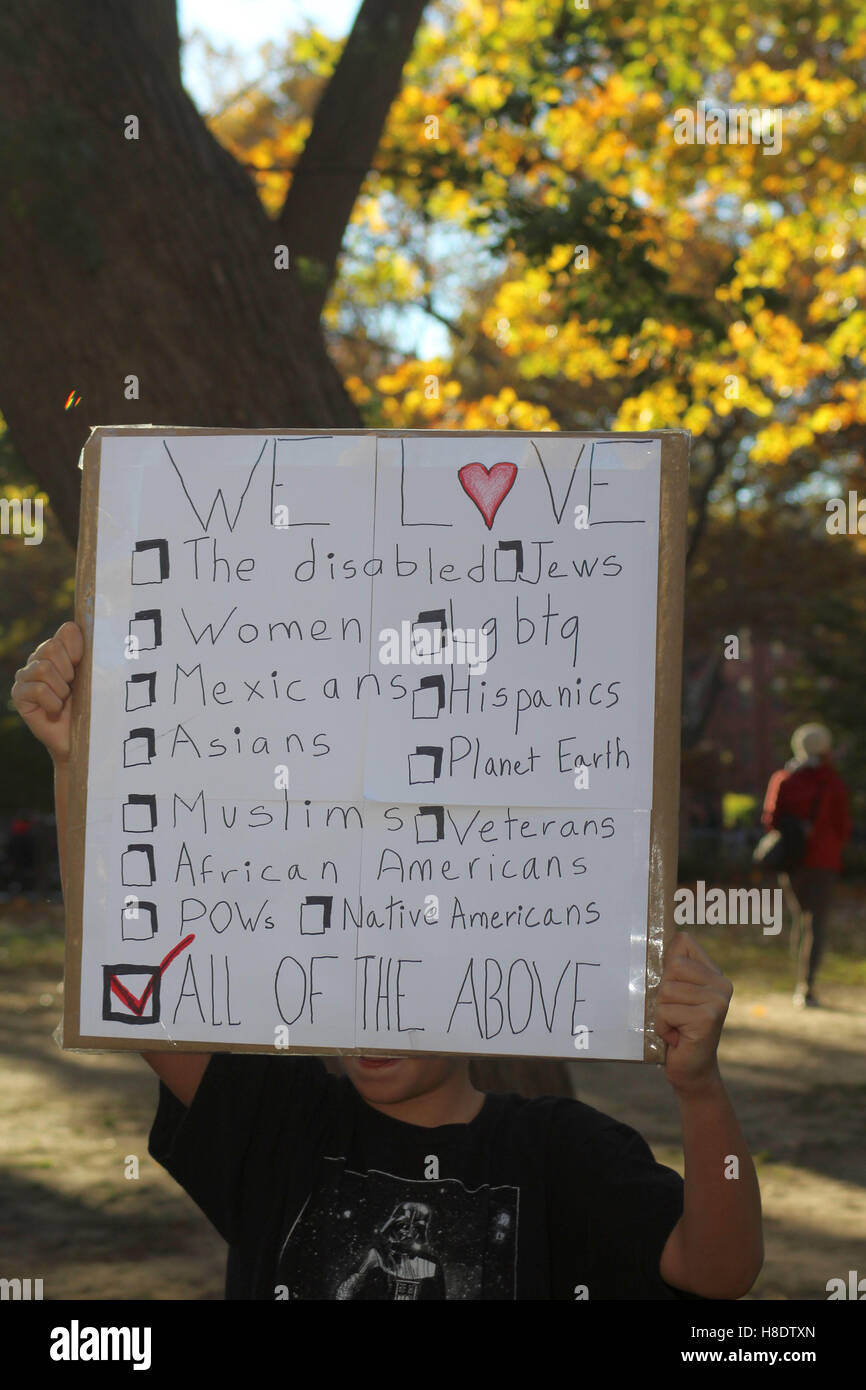 WE L♥VE
The disabled Jews
Women Lgbtq
Mexicans Hispanics
Asians Planet Earth
Muslims Veterans
African Americans
POWs Native Americans
ALL OF THE ABOVE
a
alamy
a
alamy
a
alamy
alamy
Image ID: H8DTXN
www.alamy.com